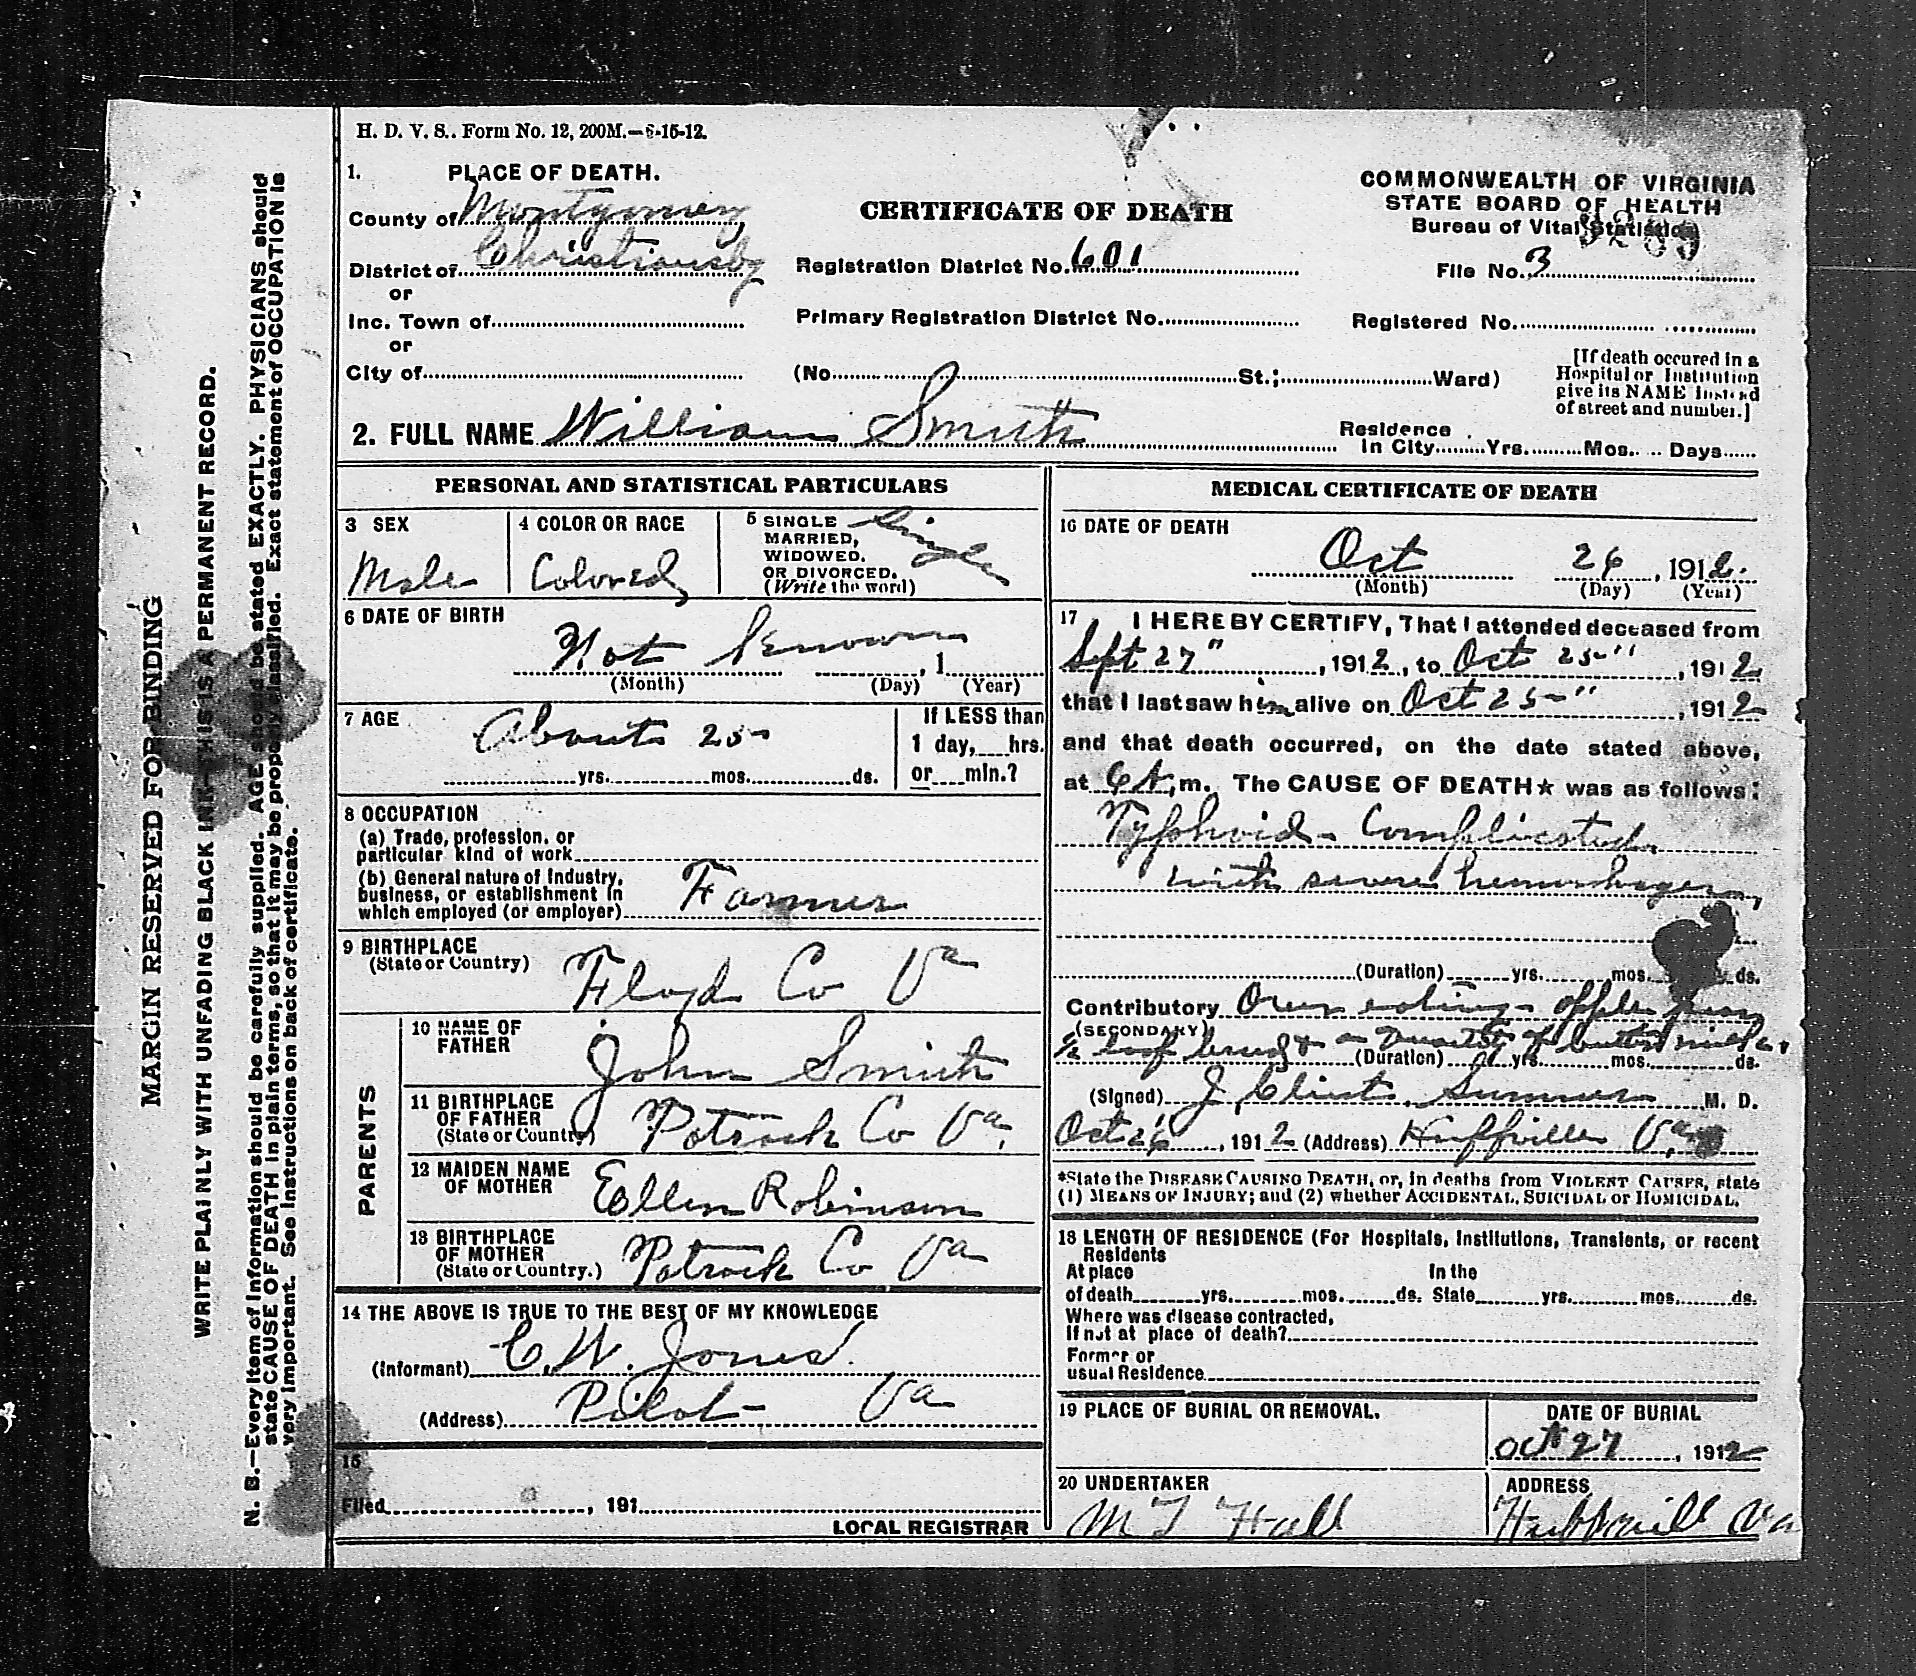 H. D. V. S.. Form No. 12, 200M.—6-15-12.
1. PLACE OF DEATH.
County of Montgomery
District of Christiansbg
or
Inc. Town of
or
City of
CERTIFICATE OF DEATH
Registration District No. 601
Primary Registration District No.
(No. St.; Ward)
COMMONWEALTH OF VIRGINIA
STATE BOARD OF HEALTH
Bureau of Vital Statistics
File No. 3
Registered No.
[If death occured in a
Hospital or Institution
give its NAME instead
of street and number.]
2. FULL NAME William Smith
Residence
In City Yrs. Mos. Days
PERSONAL AND STATISTICAL PARTICULARS
3 SEX
Male
4 COLOR OR RACE
Colored
5 SINGLE
MARRIED,
WIDOWED.
OR DIVORCED.
(Write the word)
Single
6 DATE OF BIRTH
Not known , 1
(Month) (Day) (Year)
7 AGE
About 25
yrs. mos. ds.
If LESS than
1 day, hrs.
or min.?
8 OCCUPATION
(a) Trade, profession, or
particular kind of work
(b) General nature of Industry,
business, or establishment in
which employed (or employer) Farmer
9 BIRTHPLACE
(State or Country) Floyd Co Va
PARENTS
10 NAME OF
FATHER John Smith
11 BIRTHPLACE
OF FATHER
(State or Country) Patrick Co Va,
12 MAIDEN NAME
OF MOTHER Ellen Robinson
13 BIRTHPLACE
OF MOTHER
(State or Country.) Patrick Co Va
14 THE ABOVE IS TRUE TO THE BEST OF MY KNOWLEDGE
(Informant) C. W. Jones.
(Address) Pilot Va
15
Filed , 191
LOCAL REGISTRAR
MEDICAL CERTIFICATE OF DEATH
16 DATE OF DEATH
Oct 26 , 1912.
(Month) (Day) (Year)
17 I HEREBY CERTIFY, That I attended deceased from
Sept 27" , 1912, to Oct 25" , 1912
that I last saw him alive on Oct 25" , 1912
and that death occurred, on the date stated above,
at 6 A, m. The CAUSE OF DEATH★ was as follows:
Typhoid - Complicated
with severe hemorhages,
(Duration) yrs. mos. ds.
Contributory Over eating -
(SECONDARY)
1/2 loaf bread & a quantity of butter milk
(Duration) yrs. mos. ds.
(Signed) J Clint. Summers M. D.
Oct 26 , 1912 (Address) Huffville Va,
*State the DISEASE CAUSING DEATH, or, in deaths from VIOLENT CAUSES, state
(1) MEANS OF INJURY; and (2) whether ACCIDENTAL, SUICIDAL or HOMICIDAL.
18 LENGTH OF RESIDENCE (For Hospitals, Institutions, Transients, or recent
Residents
At place In the
of death yrs. mos. ds. State yrs. mos. ds.
Where was disease contracted,
If not at place of death?
Former or
usual Residence
19 PLACE OF BURIAL OR REMOVAL.
DATE OF BURIAL
Oct 27 , 1912
20 UNDERTAKER
M T Hall
ADDRESS
Huffville Va
MARGIN RESERVED FOR BINDING
WRITE PLAINLY WITH UNFADING BLACK INK—THIS IS A PERMANENT RECORD.
N. B.—Every item of information should be carefully supplied. AGE should be stated EXACTLY. PHYSICIANS should
state CAUSE OF DEATH in plain terms, so that it may be properly classified. Exact statement of OCCUPATION is
very important. See instructions on back of certificate.